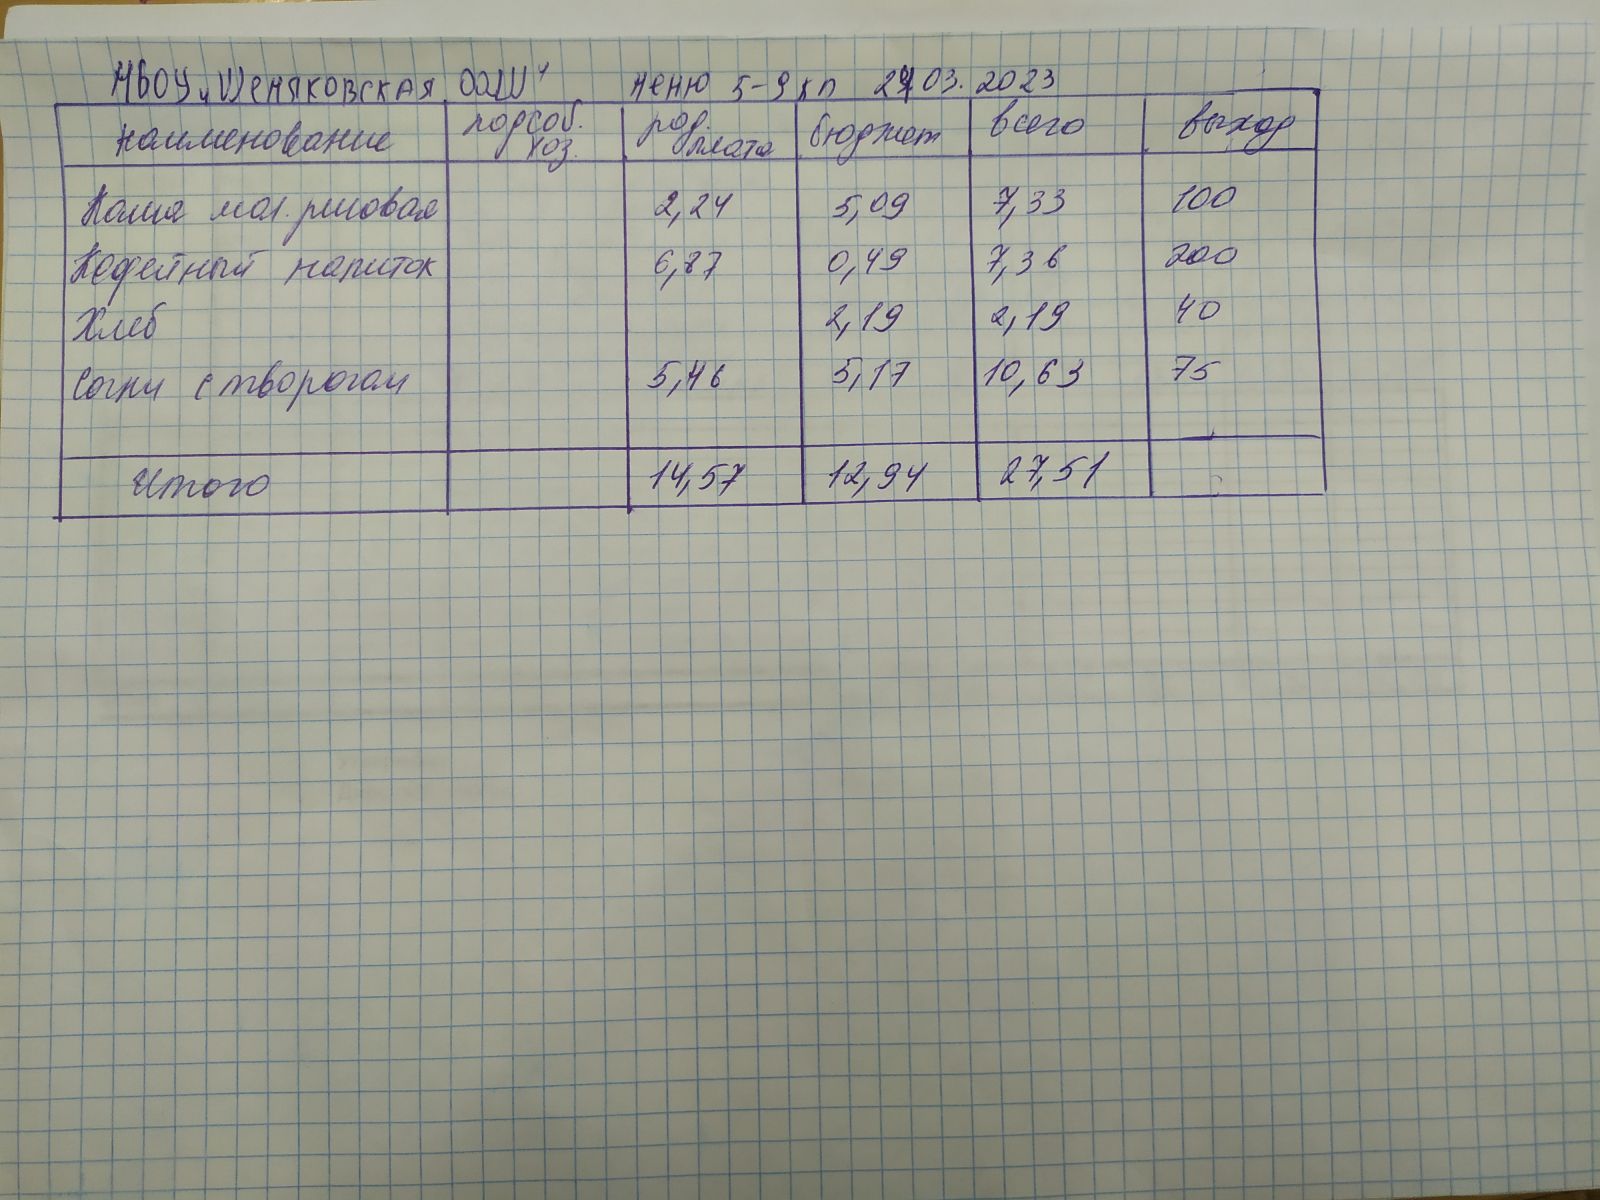 МБОУ "Шеняковская ООШ" меню 5-9 кл 24.03.2023
наименование подсоб. хоз. род. плата бюджет всего выход
Каша мол. рисовая 2,24 5,09 7,33 100
Кофейный напиток 6,87 0,49 7,36 200
Хлеб 2,19 2,19 40
Согни с творогом 5,46 5,17 10,63 75
Итого 14,57 12,94 27,51